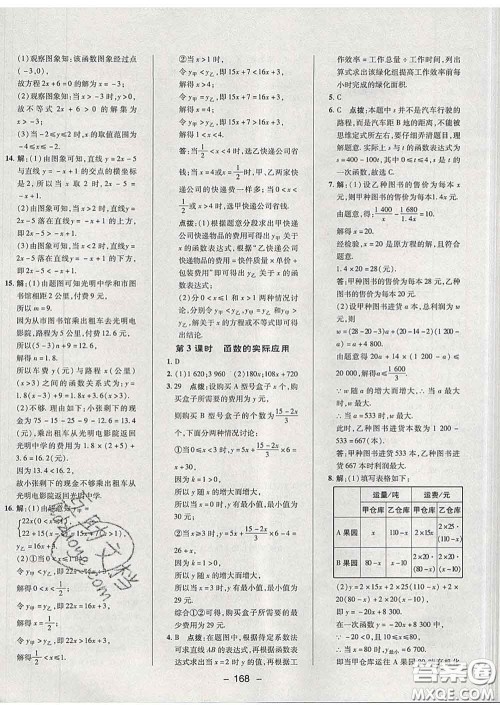 (1)观察图象知：该函数图象经过点
(-3,0)，
故方程 2x+6=0 的解为 x=-3；
(2)观察图象知：当 x>-3 时，y>0，
故不等式 2x+6>0 的解集为
x>-3；
(3)当 -2≤y≤2 时，x 的取值范围
为 -4≤x≤-2.
14. 解：(1)由图象可知，直线 y=2x-5
与直线 y=-x+1 的交点的横坐标
是 2，所以当 x 取 2 时，2x-5=
-x+1.
(2)由图象可知，当 x>2 时，直线 y=
2x-5 落在直线 y=-x+1 的上方，
即 2x-5>-x+1.
(3)由图象可知，当 x<2 时，直线 y=
2x-5 落在直线 y=-x+1 的下方，
即 2x-5<-x+1.
15. 解：(1)由题图可知光明中学和市图
书馆相距 2 公里，付费 9 元，
所以 m=9.
因为从市图书馆乘出租车去光明电
影院，路程为 5 公里，付费 12.6 元，
解得 n=1.8.
所以车费 y(元)与路程 x(公里)
(x≥3)之间的函数关系式为：y=
1.8(x-3)+9=1.8x+3.6(x≥3).
(2)如图得：小张剩下的现金为
75-15-25-9-12.6=13.4(元)，
乘出租车从光明电影院返回
光明中学的费用：y=1.8×7+3.6=
16.2(元).
因为 13.4<16.2，
故小张剩下的现金不够乘出租车从
光明电影院返回光明中学.
16. 解：(1)由题意知：
(2)①当 0<x≤1 时，
令 y甲<y乙，即 22x<16x+3，
解得 0<x<1/2；
令 y甲=y乙，即 22x=16x+3，
解得 x=1/2；
令 y甲>y乙，即 22x>16x+3，
解得 1/2<x≤1.
②当 x>1 时，
令 y甲<y乙，即 15x+7<16x+3，
解得 x>4；
令 y甲=y乙，即 15x+7=16x+3，
解得 x=4；
令 y甲>y乙，即 15x+7>16x+3，
解得 1<x<4.
答：当 1/2<x<4 时，选乙快递公司
省钱；当 x=4 或 x=1/2 时，甲、乙两家快
递公司快递费一样多；当 0<x<1/2
或 x>4 时，选甲快递公司省钱.
点拨：(1)根据题意分段求出甲快递
公司快递物品的费用可得出 y甲 关
于 x 的函数表达式；根据“乙快递公司
快递物品的费用=快递物品单价+
包装费用”即可得出 y乙 关于 x 的函数
表达式；
(2)分 0<x≤1 和 x>1 两种情况讨
论，分别令 y甲<y乙、y甲=y乙 和
y甲>y乙，解关于 x 的方程或不等式
即可得出结论.
第 3 课时 函数的实际应用
1. D
2. (1)1 620;3 960 (2)180x;108x+720
3. 29 点拨：设购买 A 型号盒子 x 个，
则购买 B 型号盒子的个数为 (15-2x)/3
个，分下面两种情况讨论：
①当 0≤x<3 时，y=5x+(15-2x)/3×
6=x+30.
因为 k=1>0，
所以 y 随 x 的增大而增大，
所以当 x=0 时，y 有最小值，最小值
为 30 元.
②当 x≥3 时，y=5x+(15-2x)/3×6-
4=26+x.
因为 k=1>0，
所以 y 随 x 的增大而增大，
所以当 x=3 时，y 有最小值，最小值
为 29 元.
综合①②可得，购买盒子所需要的最
少费用为 29 元.
4. B 点拨：在题图中，根据待定系数法
可求直线 AB 的表达式，再根据函数
表达式求出当 x=2 时 y 的值，再根据工
作效率=工作总量÷工作时间，列出
算式求出该绿化组提高工作效率前每
小时完成的绿化面积.
5. C
6. C 点拨：本题中 s 并不是汽车行驶的
路程，而是汽车距 B 地的距离，不要
因思维定式而忽略对问题的理解，造
成错误，解决本题时应仔细弄清题意.
s=400-100t，其中 0≤t≤4，s 是 t 的
一次函数，故选 C.
7. 解：(1)设乙种图书的售价为每本 x
元，则甲种图书的售价为每本 1.4x 元.
由题意，得 1 400/x - 1 680/1.4x =10.
解得 x=20.
经检验，x=20 是原方程的解，且符合
题意.
1.4×20=28(元).
答：甲种图书的售价为每本 28 元，乙
种图书的售价为每本 20 元.
(2)设甲种图书进货 a 本，总利润
w 元，则
w=(28-20-3)a+(20-14-2)(1 200-
a)=a+4 800.
∵20a+14×(1 200-a)≤20 000，
解得 a≤1 600/3.
∵w 随 a 的增大而增大，
∴当 a=533 时，w 最大，
此时，乙种图书进货本数为 1 200-
533=667(本).
答：甲种图书进货 533 本，乙种图书进
货 667 本时利润最大.
8. 解：(1)填写表格如下：
运量/吨 运费/元
甲仓库 乙仓库 甲仓库 乙仓库
A 果园 x 110-x 2×15x 2×25×(110-x)
B 果园 80-x x-10 2×20×(80-x) 2×20×(x-10)
(2)y=2×15x+2×25×(110-x)+2×
20×(80-x)+2×20×(x-10)，即
y=-20x+8 300.
∵-20<0，且 10≤x≤80，
∴当 x=80 时，y 最小=6 700.
即当甲仓库运往 A 果园 80 吨有机化
— 168 —
作业精灵
答案圈
MXQE.COM